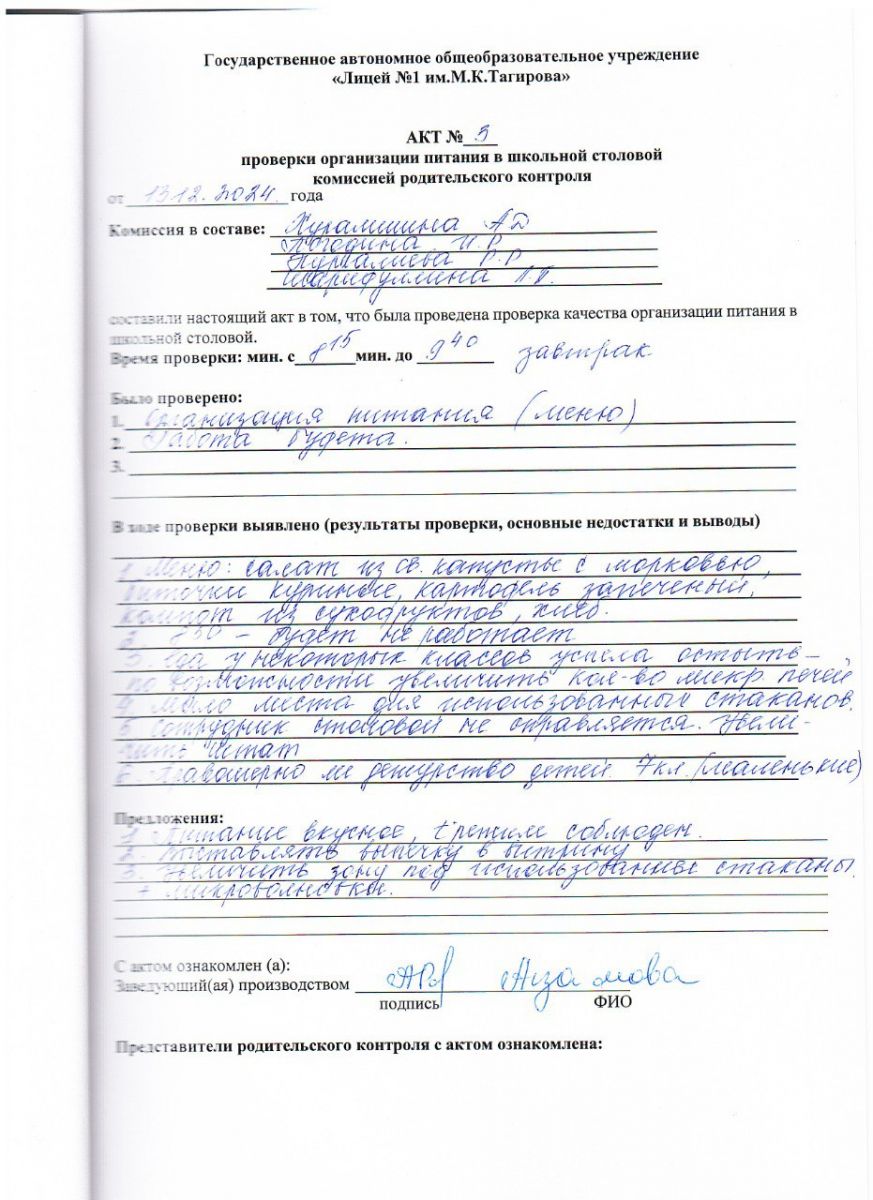 Государственное автономное общеобразовательное учреждение
«Лицей №1 им.М.К.Тагирова»
АКТ № 3
проверки организации питания в школьной столовой
комиссией родительского контроля
от 13.12.2024. года
Комиссия в составе: Хурамшина А Д
Погодина И.Р
Нургалиева Р.Р
Шарифуллина Л.Т.
составили настоящий акт в том, что была проведена проверка качества организации питания в
школьной столовой.
Время проверки: мин. с 8 15 мин. до 9 40 завтрак
Было проверено:
1. Организация питания (меню)
2. Работа буфета.
3.
В ходе проверки выявлено (результаты проверки, основные недостатки и выводы)
1. Меню: салат из св. капусты с морковью,
биточки куриные, картофель запеченый,
компот из сухофруктов, хлеб.
2. 8 30 – буфет не работает
3. Еда у некоторых классов успела остыть –
по возможности увеличить кол-во микр. печей
4 мало места для использованных стаканов.
5 Сотрудник столовой не справляется. Увели-
чить штат
6. Правомерно ли дежурство детей 7кл. (маленькие)
Предложения:
1. Питание вкусное, t режим соблюден.
2. Выставлять выпечку в витрину
3. Увеличить зону под использованные стаканы.
+ микроволновки.
С актом ознакомлен (а):
Заведующий(ая) производством Азамова
подпись ФИО
Представители родительского контроля с актом ознакомлена: